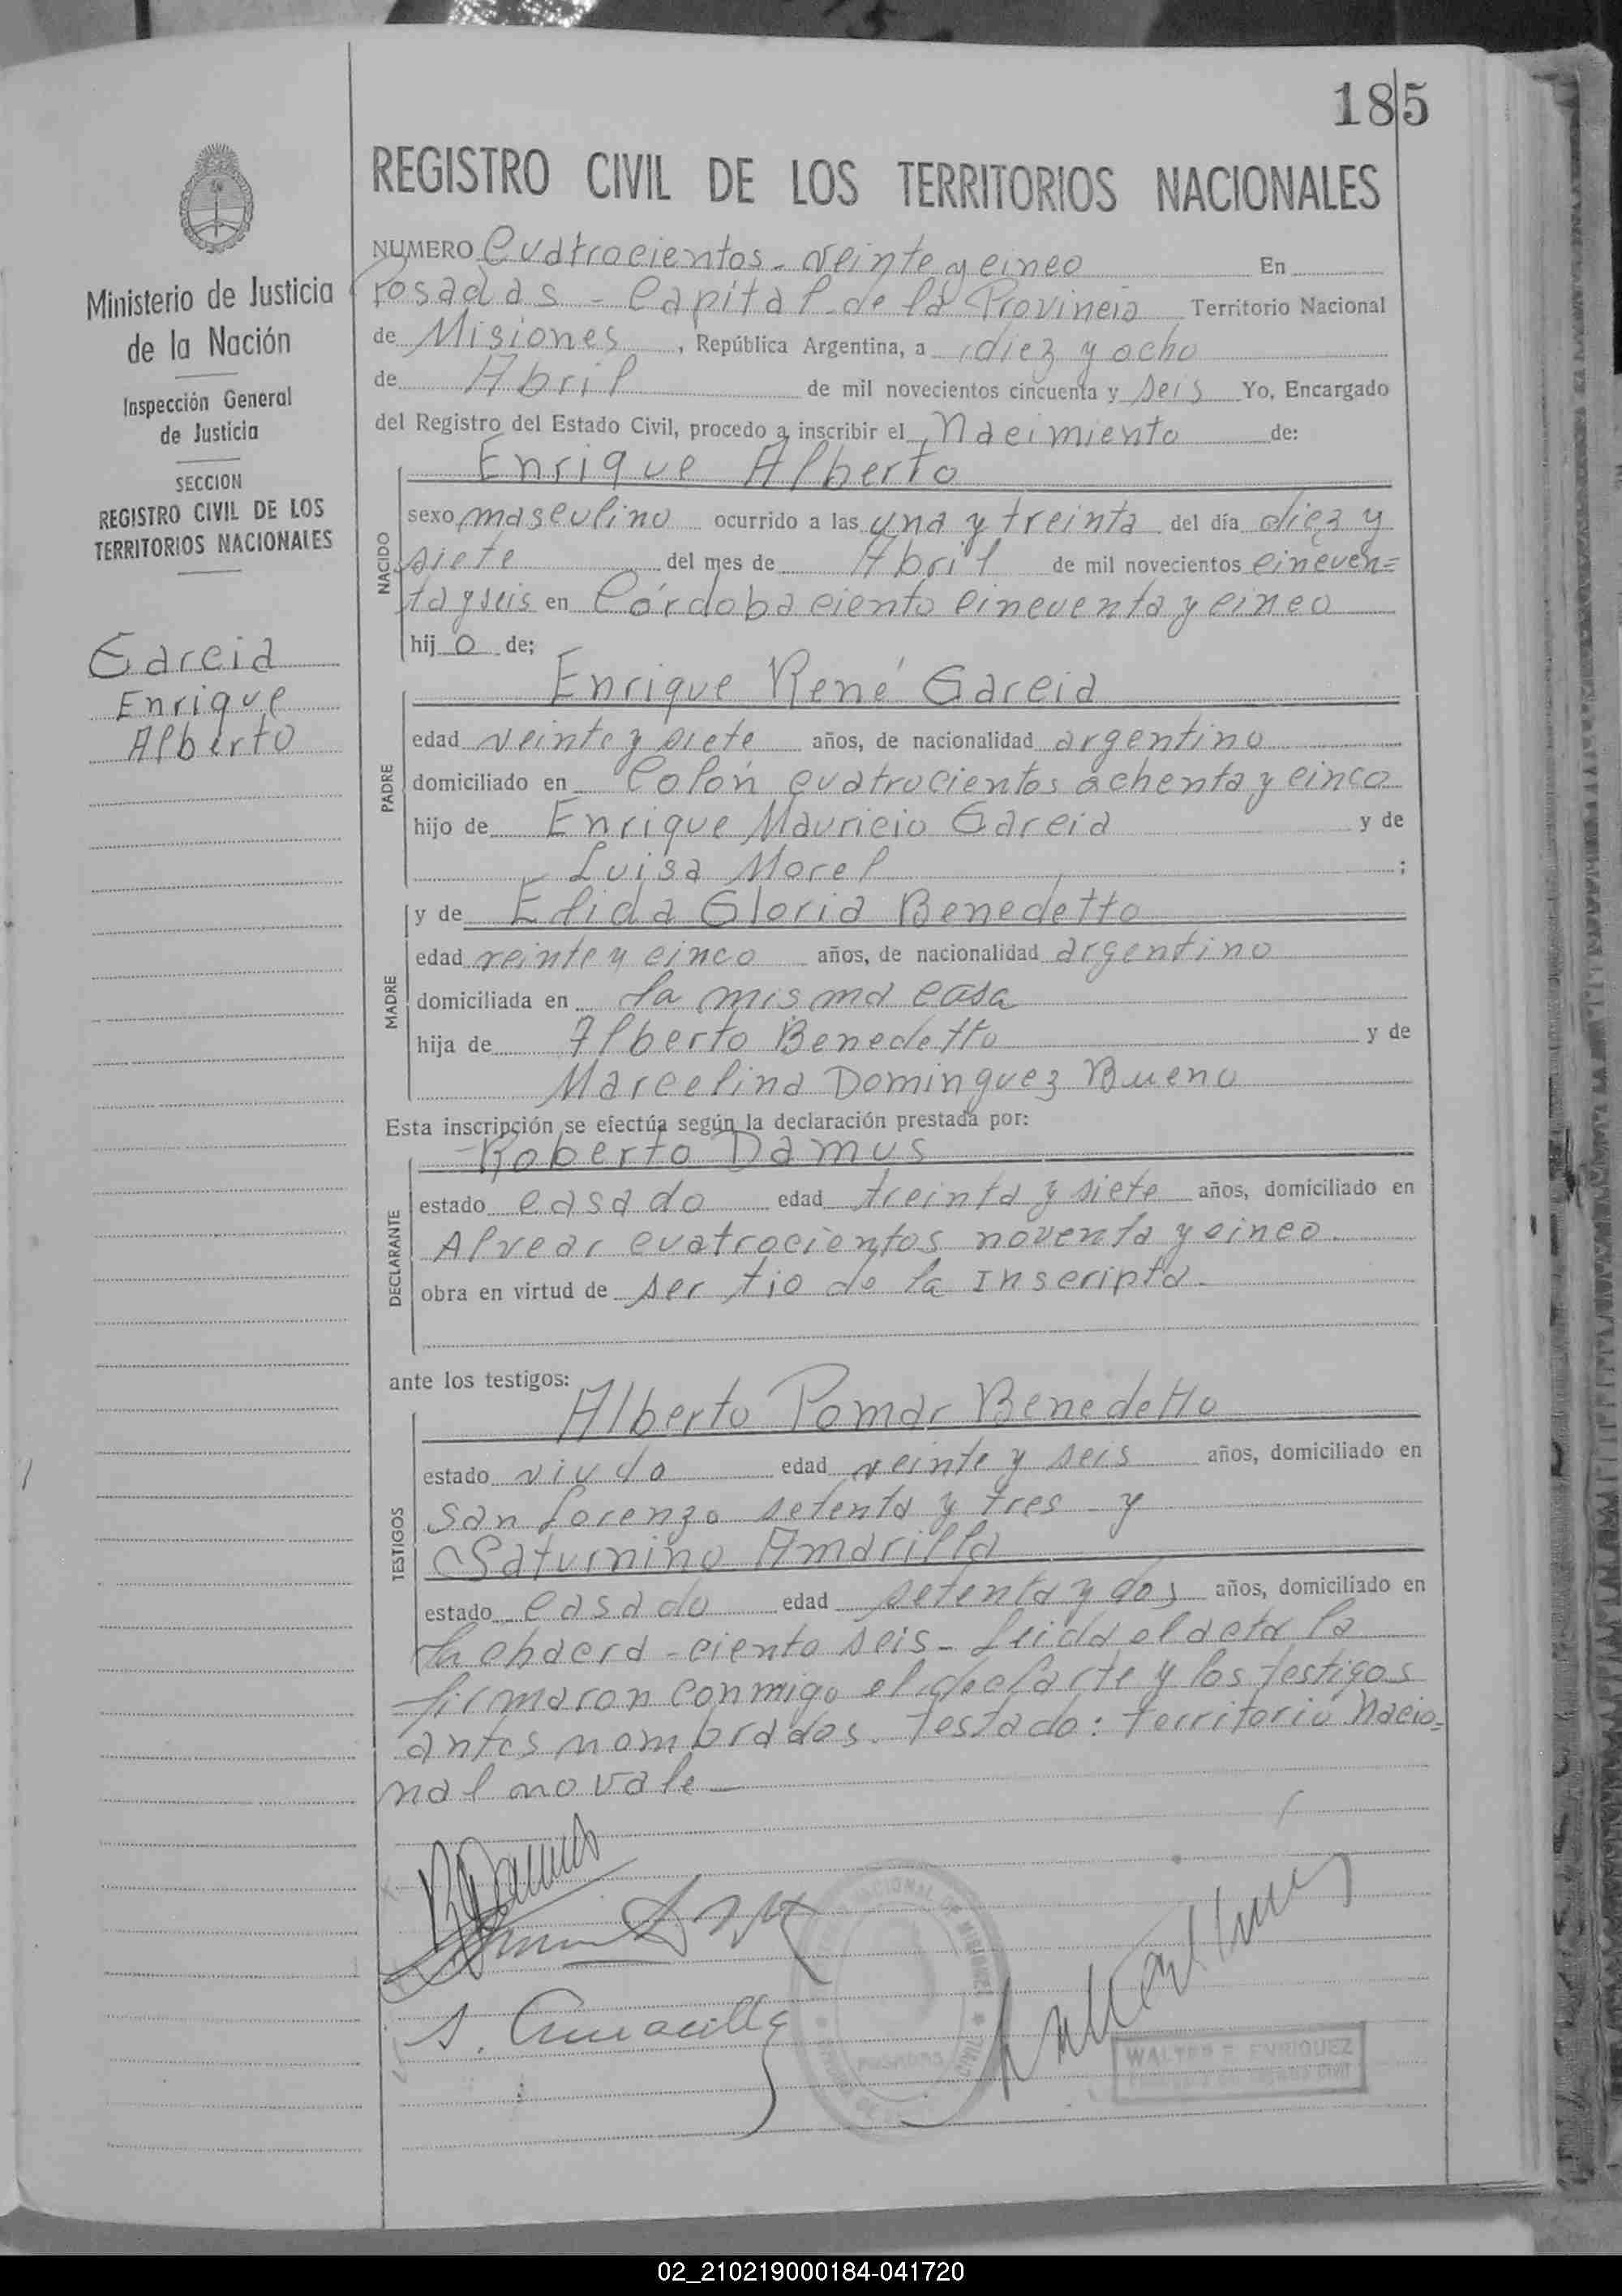 185
REGISTRO CIVIL DE LOS TERRITORIOS NACIONALES
Ministerio de Justicia
de la Nación
Inspección General
de Justicia
SECCION
REGISTRO CIVIL DE LOS
TERRITORIOS NACIONALES
Garcia
Enrique
Alberto
NUMERO Cuatrocientos - veinte y cinco En
Posadas - Capital de la Provincia Territorio Nacional
de Misiones, República Argentina, a diez y ocho
de Abril de mil novecientos cincuenta y seis Yo, Encargado
del Registro del Estado Civil, procedo a inscribir el Nacimiento de:
NACIDO
Enrique Alberto
sexo masculino ocurrido a las una y treinta del día diez y
siete del mes de Abril de mil novecientos cincuen=
ta y seis en Córdoba ciento cincuenta y cinco
hij o de;
PADRE
Enrique René Garcia
edad veinte y siete años, de nacionalidad argentino
domiciliado en Colón cuatrocientos ochenta y cinco
hijo de Enrique Mauricio Garcia y de
Luisa Morel ;
MADRE
y de Elida Gloria Benedetto
edad veinte y cinco años, de nacionalidad argentino
domiciliada en la misma casa
hija de Alberto Benedetto y de
Marcelina Dominguez Bueno
Esta inscripción se efectúa según la declaración prestada por:
DECLARANTE
Roberto Damus
estado casado edad treinta y siete años, domiciliado en
Alvear cuatrocientos noventa y cinco.
obra en virtud de ser tio de la Inscripta.
ante los testigos:
TESTIGOS
Alberto Pomar Benedetto
estado viudo edad veinte y seis años, domiciliado en
San Lorenzo setenta y tres - y
Saturnino Amarilla
estado casado edad setenta y dos años, domiciliado en
la chacra - ciento seis - Leida el acta la
firmaron conmigo el declarte y los testigos
antes nombrados. Testado: territorio Nacio=
nal no vale -
S. Amarilla
POSADAS
WALTER E. ENRIQUEZ
02_210219000184-041720